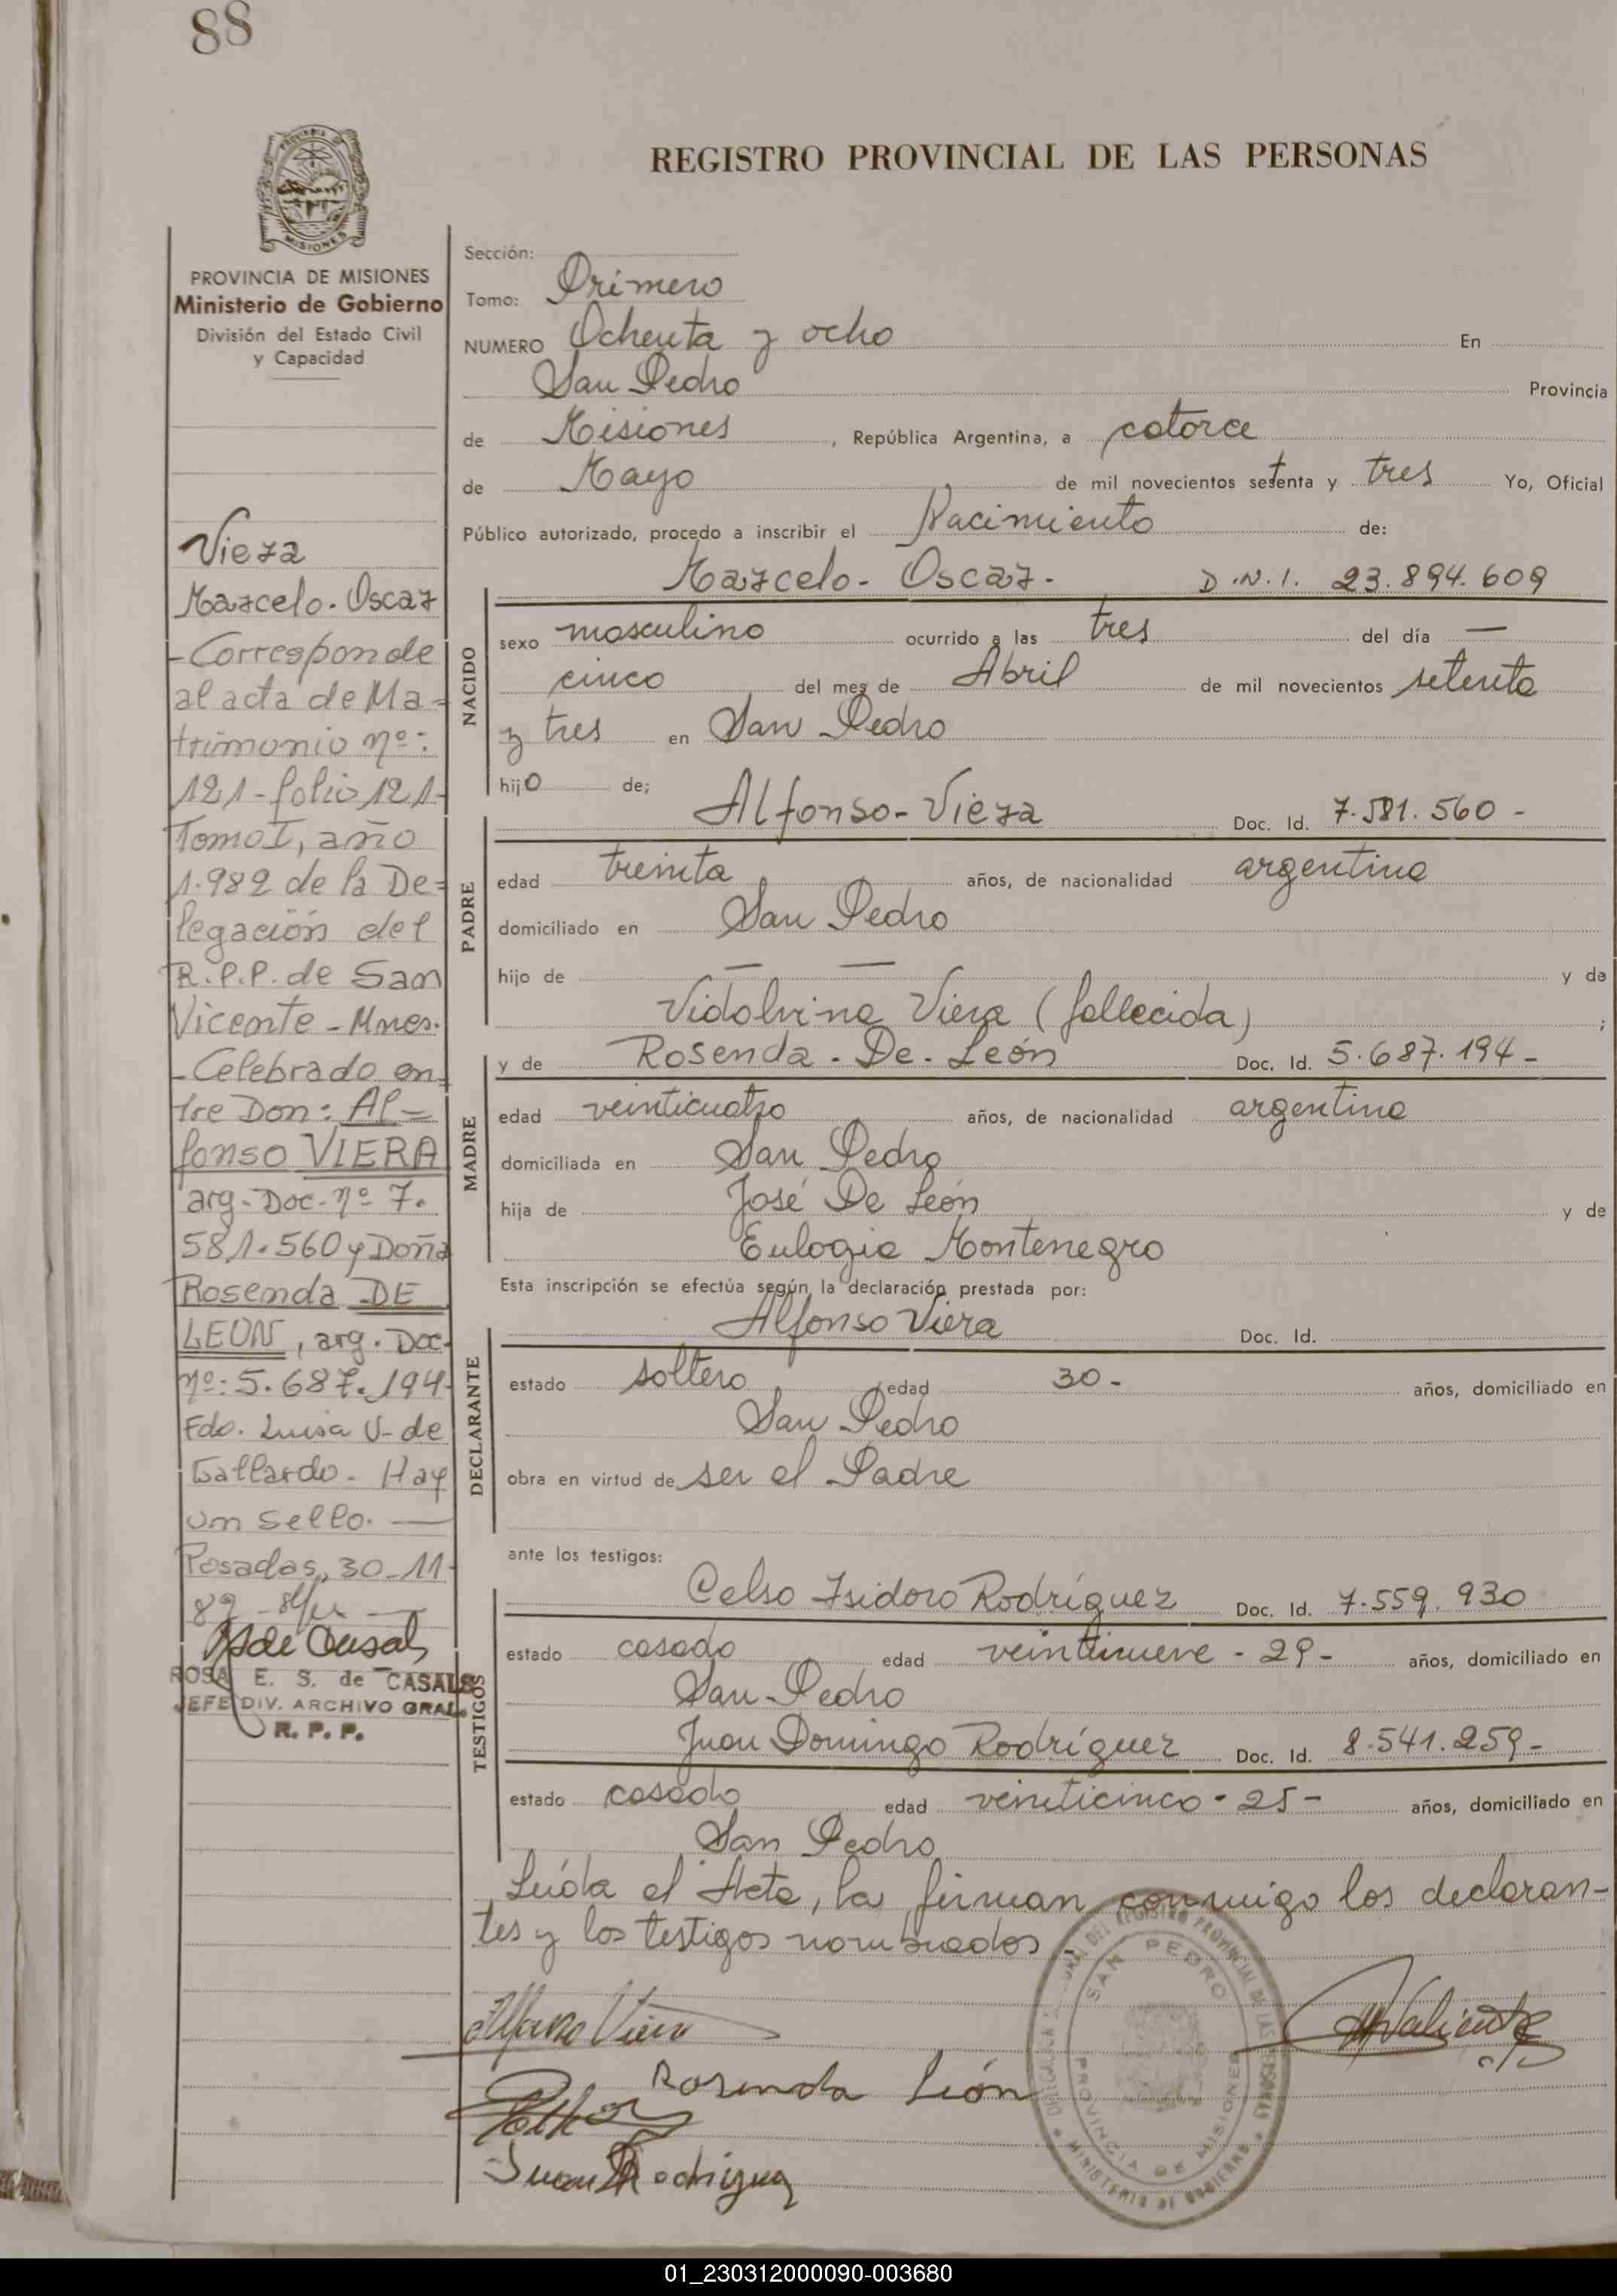 88
REGISTRO PROVINCIAL DE LAS PERSONAS
MISIONES
PROVINCIA DE MISIONES
Ministerio de Gobierno
División del Estado Civil
y Capacidad
Viera
Marcelo. Oscar
- Corresponde
al acta de Ma=
trimonio nº:
121 - folio 121-
Tomo I, año
1.982 de la De=
legación del
R.P.P. de San
Vicente - Mnes.
- Celebrado en=
tre Don: Al=
fonso VIERA
arg. Doc. nº 7.
581.560 y Doña
Rosenda DE
LEON, arg. Doc.
nº: 5.687.194-
Fdo. Luisa V. de
Gallardo. Hay
un sello. —
Posadas, 30-11-
82 -
ROSA E. S. de CASALS
JEFE DIV. ARCHIVO GRAL.
R. P. P.
Sección:
Tomo: Primero
NUMERO Ochenta y ocho En
San Pedro Provincia
de Misiones, República Argentina, a catorce
de Mayo de mil novecientos setenta y tres Yo, Oficial
Público autorizado, procedo a inscribir el Nacimiento de:
Marcelo - Oscar - D.N.I. 23.894.609
NACIDO
sexo masculino ocurrido a las tres del día —
cinco del mes de Abril de mil novecientos setenta
y tres en San Pedro
hijo de;
Alfonso - Viera Doc. Id. 7.581.560 -
PADRE
edad treinta años, de nacionalidad argentina
domiciliado en San Pedro
hijo de — — y de
Vidolvina Viera (fallecida) ;
y de Rosenda - De - León Doc. Id. 5.687.194 -
MADRE
edad veinticuatro años, de nacionalidad argentina
domiciliada en San Pedro
hija de José De León y de
Eulogia Montenegro
Esta inscripción se efectúa según la declaración prestada por:
Alfonso Viera Doc. Id.
DECLARANTE
estado soltero edad 30 - años, domiciliado en
San Pedro
obra en virtud de ser el Padre
ante los testigos:
Celso Isidoro Rodríguez Doc. Id. 7.559.930
TESTIGOS
estado casado edad veintinueve - 29 - años, domiciliado en
San Pedro
Juan Domingo Rodríguez Doc. Id. 8.541.259 -
estado casado edad veinticinco - 25 - años, domiciliado en
San Pedro
Leída el Acta, la firman conmigo los declaran-
tes y los testigos nombrados -
Alfonso Viera
Rosenda León
Juan Rodriguez
SAN PEDRO
PROVINCIA DE MISIONES
MINISTERIO DE GOBIERNO
01_230312000090-003680